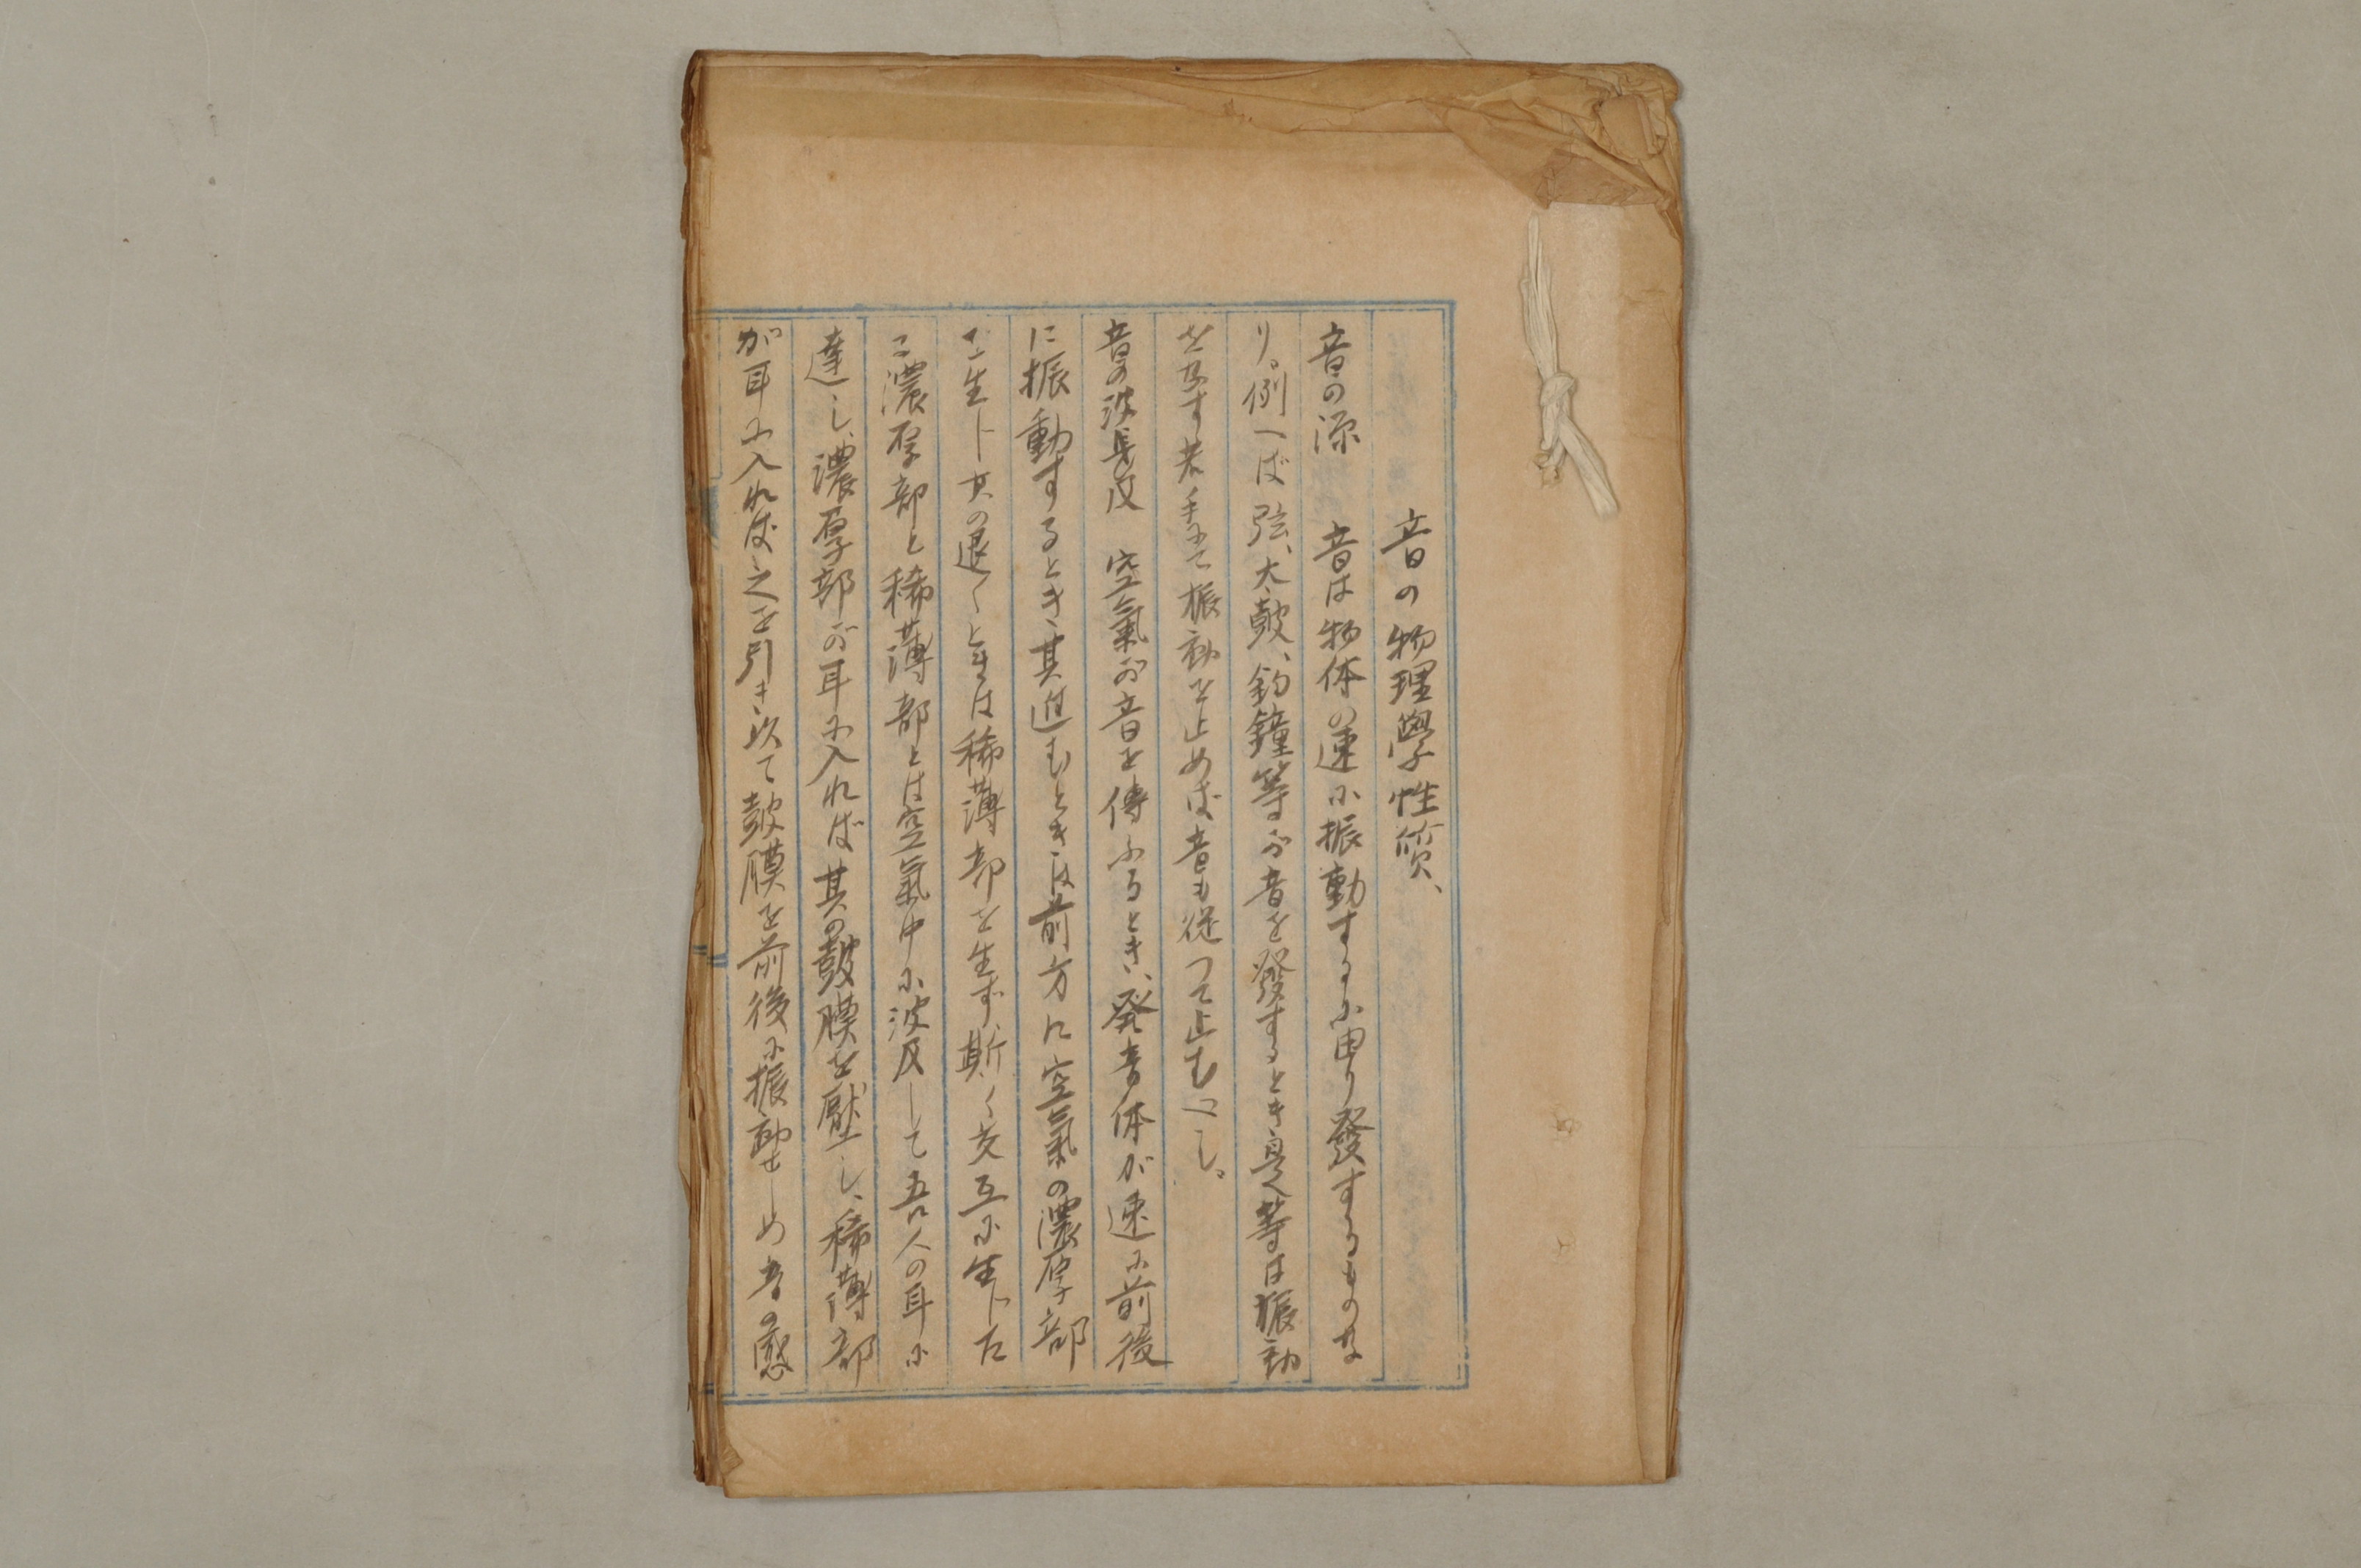 音の物理學性質、
音の源　音は物体の速に振動するに由り發するものな
り。例へば弦、太鼓、釣鐘等が音を發するとき是等は振動
を為す若手にて振動を止めば音も従つて止むべし。
音の波長及　空氣が音を傳ふるとき、発音体が速に前後
に振動するとき、其進むときは前方に空氣の濃厚部
を生じ其の退くときは稀薄部を生ず、斯く交互に生じた
る濃厚部と稀薄部とは空氣中に波及して吾人の耳に
達し、濃厚部が耳に入れば其の鼓膜を壓し、稀薄部
が耳に入れば之を引き以て鼓膜を前後に振動せしめ音の感